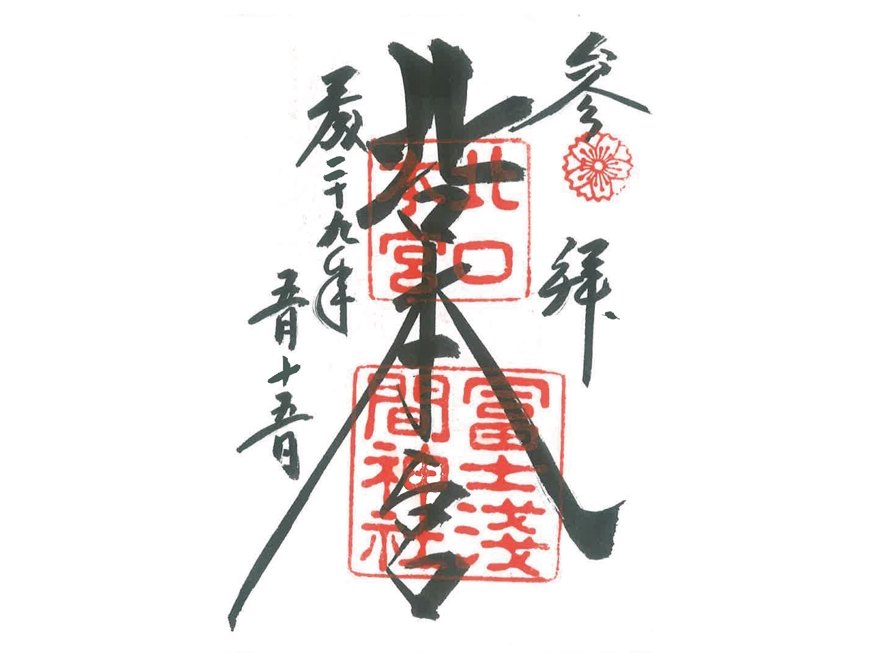 参拝
北口本宮
北口
本宮
冨士淺
間神社
歳二十九年
五月十五日